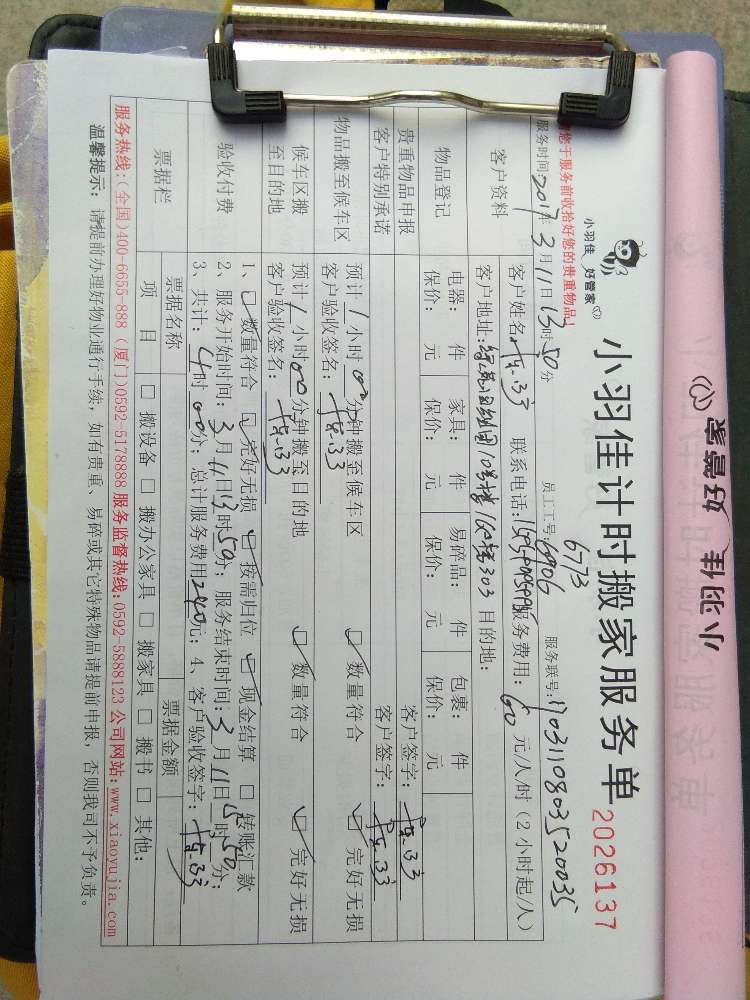 家管好 小羽佳
小羽佳 好管家
小羽佳计时搬家服务单
2026137
您于服务前收拾好您的贵重物品!
6773
服务时间:2017年3月11日13时50分 员工工号:6906 服务联号:1703110803520035
客户资料
客户姓名: 联系电话: 服务费用:60元/人/时(2小时起/人)
客户地址: 303 目的地:
物品登记
电器: 件 家具: 件 易碎品: 件 包裹: 件
保价: 元 保价: 元 保价: 元 保价: 元
贵重物品申报 客户签字:
客户特别承诺 客户签字:
物品搬至候车区
预计1小时00分钟搬至候车区 数量符合 完好无损
客户验收签名:
候车区搬至目的地
预计1小时00分钟搬至目的地 数量符合 完好无损
客户验收签名:
验收付费
1、数量符合 完好无损 按需归位 现金结算 转账汇款
2、服务开始时间:3月11日13时50分; 服务结束时间:3月11日15时50分;
3、共计:4时00分; 总计服务费用240元; 4、客户验收签字:
票据栏
票据名称 票据金额
项目 搬设备 搬办公家具 搬家具 搬书 其他:
服务热线:(全国)400-6655-888 (厦门)0592-5178888 服务监督热线:0592-5888123 公司网站:www.xiaoyujia.com
温馨提示: 请提前办理好物业通行手续,如有贵重、易碎或其它特殊物品请提前申报,否则我司不予负责。